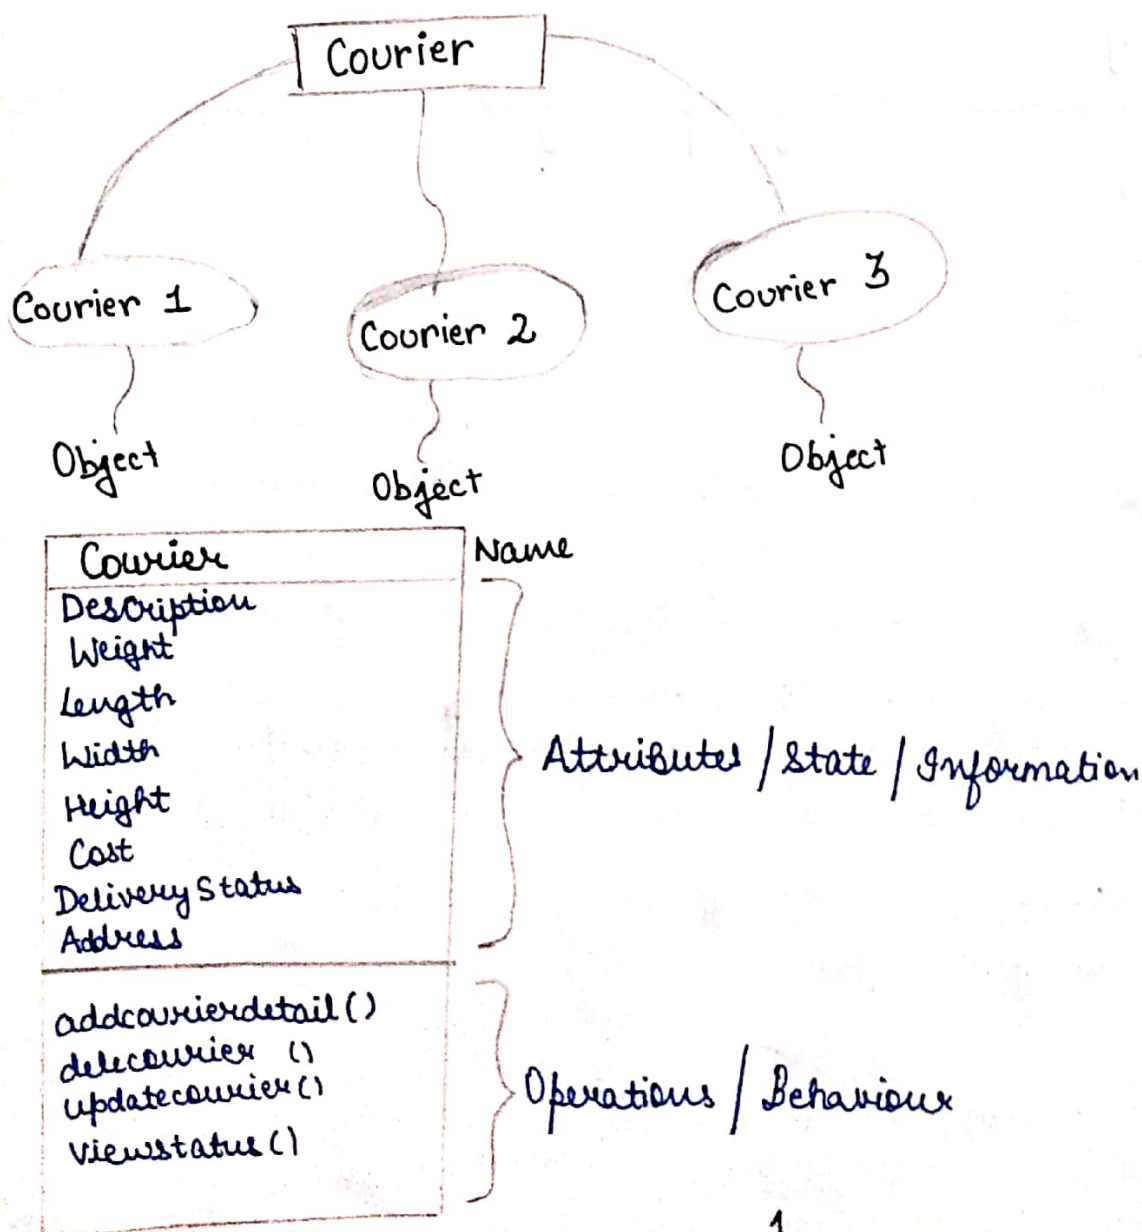 Courier
Courier 1
Courier 2
Courier 3
Object
Object
Object
Courier
Name
Description
Weight
Length
Width
Height
Cost
Delivery Status
Address
Attributes / State / Information
addcourierdetail ()
delecourier ()
updatecourier ()
viewstatus ()
Operations / Behaviour
1